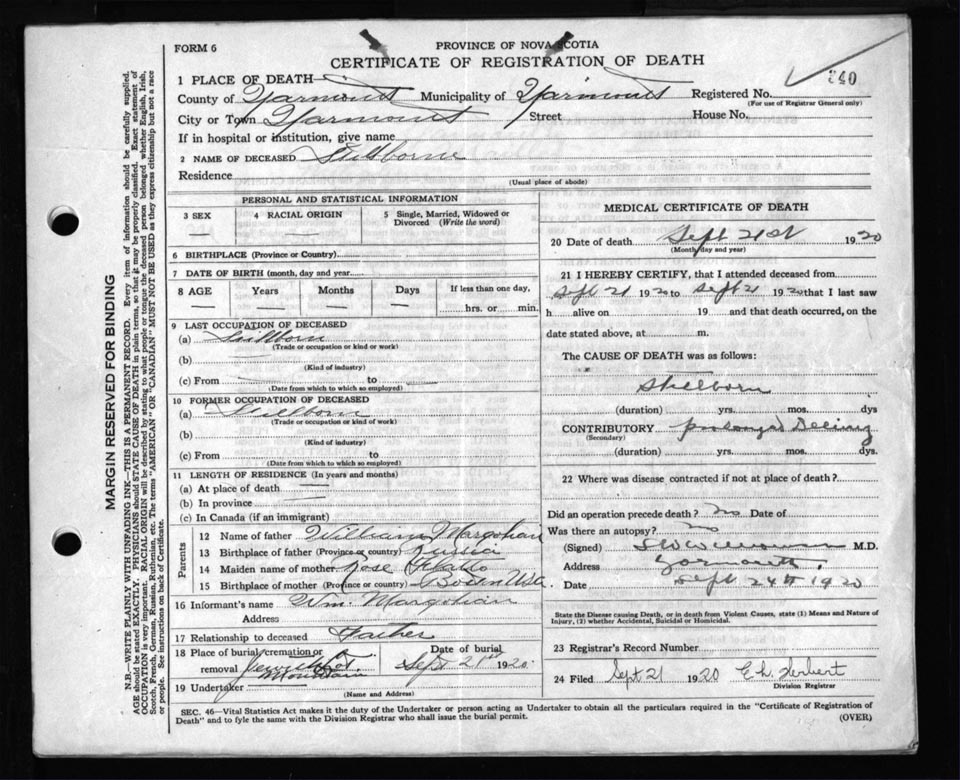 FORM 6
PROVINCE OF NOVA SCOTIA
CERTIFICATE OF REGISTRATION OF DEATH
340
1 PLACE OF DEATH
County of Yarmouth Municipality of Yarmouth Registered No.
(For use of Registrar General only)
City or Town Yarmouth Street House No.
If in hospital or institution, give name
2 NAME OF DECEASED Stillborn
Residence
(Usual place of abode)
PERSONAL AND STATISTICAL INFORMATION
3 SEX 4 RACIAL ORIGIN 5 Single, Married, Widowed or Divorced (Write the word)
6 BIRTHPLACE (Province or Country)
7 DATE OF BIRTH (month, day and year)
8 AGE Years Months Days If less than one day,
hrs. or min.
9 LAST OCCUPATION OF DECEASED
(a) Stillborn
(Trade or occupation or kind or work)
(b)
(Kind of industry)
(c) From to
(Date from which to which so employed)
10 FORMER OCCUPATION OF DECEASED
(a) Stillborn
(Trade or occupation or kind of work)
(b)
(Kind of industry)
(c) From to
(Date from which to which so employed)
11 LENGTH OF RESIDENCE (In years and months)
(a) At place of death
(b) In province
(c) In Canada (if an immigrant)
Parents
12 Name of father William Margolian
13 Birthplace of father (Province or country) Russia
14 Maiden name of mother Rose
15 Birthplace of mother (Province or country) U.S.A.
16 Informant's name Wm. Margolian
Address
17 Relationship to deceased Father
18 Place of burial, cremation or removal Jewish Lot Mountain
Date of burial Sept 21st 1920.
19 Undertaker
(Name and Address)
MEDICAL CERTIFICATE OF DEATH
20 Date of death Sept 21st 1920
(Month, day and year)
21 I HEREBY CERTIFY, that I attended deceased from
Sept 21 1920 to Sept 21 1920 that I last saw
h alive on 19 and that death occurred, on the
date stated above, at m.
The CAUSE OF DEATH was as follows:
Stillborn
(duration) yrs. mos. dys
CONTRIBUTORY prolonged
(Secondary)
(duration) yrs. mos. dys.
22 Where was disease contracted if not at place of death?
Did an operation precede death? no Date of
Was there an autopsy? no
(Signed) M.D.
Address Yarmouth.
Date Sept 24th 1920
State the Disease causing Death, or in death from Violent Causes, state (1) Means and Nature of
Injury, (2) whether Accidental, Suicidal or Homicidal.
23 Registrar's Record Number
24 Filed Sept 21 1920 E. L. Herbert
Division Registrar
SEC. 46—Vital Statistics Act makes it the duty of the Undertaker or person acting as Undertaker to obtain all the particulars required in the "Certificate of Registration of
Death" and to fyle the same with the Division Registrar who shall issue the burial permit.
(OVER)
MARGIN RESERVED FOR BINDING
N.B.—WRITE PLAINLY WITH UNFADING INK—THIS IS A PERMANENT RECORD. Every item of information should be carefully supplied.
AGE should be stated EXACTLY. PHYSICIANS should STATE CAUSE OF DEATH in plain terms, so that it may be properly classified. Exact statement of
OCCUPATION is very important. RACIAL ORIGIN will be described by stating to what people or tongue the deceased person belonged whether English, Irish,
Scotch, French, German, Russian, Ruthenian, etc. The terms "AMERICAN" OR "CANADIAN" MUST NOT BE USED as they express citizenship but not a race
or people. See instructions on back of Certificate.